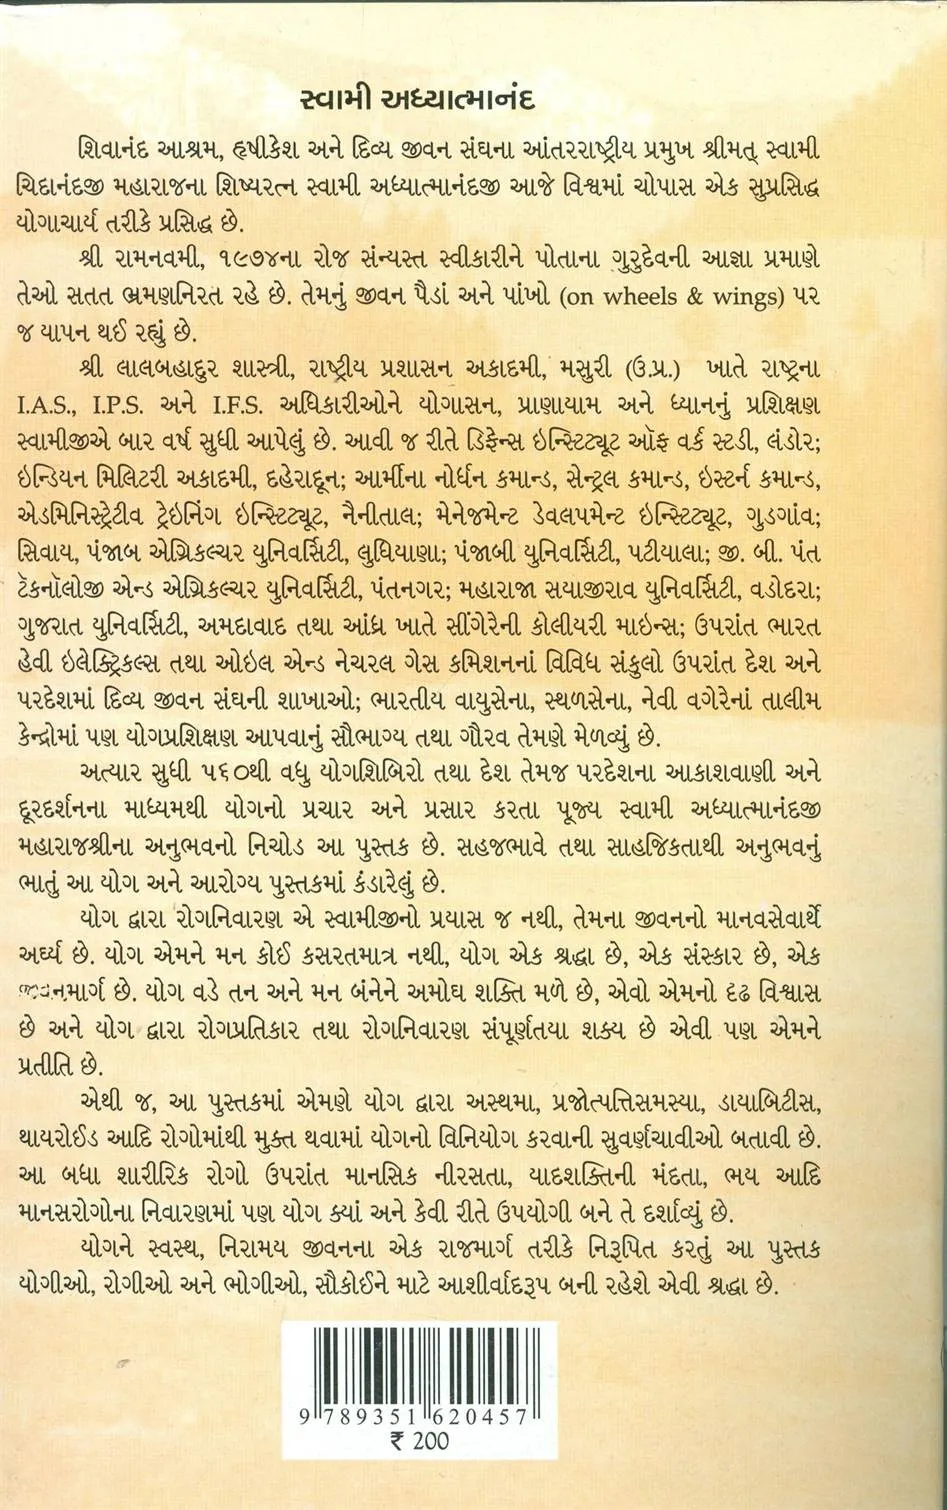 સ્વામી અધ્યાત્માનંદ
શિવાનંદ આશ્રમ, હૃષીકેશ અને દિવ્ય જીવન સંઘના આંતરરાષ્ટ્રીય પ્રમુખ શ્રીમત્ સ્વામી
ચિદાનંદજી મહારાજના શિષ્યરત્ન સ્વામી અધ્યાત્માનંદજી આજે વિશ્વમાં ચોપાસ એક સુપ્રસિદ્ધ
યોગાચાર્ય તરીકે પ્રસિદ્ધ છે.
શ્રી રામનવમી, ૧૯૭૪ના રોજ સંન્યસ્ત સ્વીકારીને પોતાના ગુરુદેવની આજ્ઞા પ્રમાણે
તેઓ સતત ભ્રમણનિરત રહે છે. તેમનું જીવન પૈડાં અને પાંખો (on wheels & wings) પર
જ યાપન થઈ રહ્યું છે.
શ્રી લાલબહાદુર શાસ્ત્રી, રાષ્ટ્રીય પ્રશાસન અકાદમી, મસુરી (ઉ.પ્ર.) ખાતે રાષ્ટ્રના
I.A.S., I.P.S. અને I.F.S. અધિકારીઓને યોગાસન, પ્રાણાયામ અને ધ્યાનનું પ્રશિક્ષણ
સ્વામીજીએ બાર વર્ષ સુધી આપેલું છે. આવી જ રીતે ડિફેન્સ ઇન્સ્ટિટ્યૂટ ઑફ વર્ક સ્ટડી, લંડોર;
ઇન્ડિયન મિલિટરી અકાદમી, દહેરાદૂન; આર્મીના નોર્ધન કમાન્ડ, સેન્ટ્રલ કમાન્ડ, ઇસ્ટર્ન કમાન્ડ,
એડમિનિસ્ટ્રેટીવ ટ્રેઇનિંગ ઇન્સ્ટિટ્યૂટ, નૈનીતાલ; મેનેજમેન્ટ ડેવલપમેન્ટ ઇન્સ્ટિટ્યૂટ, ગુડગાંવ;
સિવાય, પંજાબ એગ્રિકલ્ચર યુનિવર્સિટી, લુધિયાણા; પંજાબી યુનિવર્સિટી, પટીયાલા; જી. બી. પંત
ટૅકનૉલૉજી એન્ડ એગ્રિકલ્ચર યુનિવર્સિટી, પંતનગર; મહારાજા સયાજીરાવ યુનિવર્સિટી, વડોદરા;
ગુજરાત યુનિવર્સિટી, અમદાવાદ તથા આંધ્ર ખાતે સીંગેરેની કોલીયરી માઇન્સ; ઉપરાંત ભારત
હેવી ઇલેક્ટ્રિકલ્સ તથા ઓઇલ એન્ડ નેચરલ ગેસ કમિશનનાં વિવિધ સંકુલો ઉપરાંત દેશ અને
પરદેશમાં દિવ્ય જીવન સંઘની શાખાઓ; ભારતીય વાયુસેના, સ્થળસેના, નેવી વગેરેનાં તાલીમ
કેન્દ્રોમાં પણ યોગપ્રશિક્ષણ આપવાનું સૌભાગ્ય તથા ગૌરવ તેમણે મેળવ્યું છે.
અત્યાર સુધી ૫૬૦થી વધુ યોગશિબિરો તથા દેશ તેમજ પરદેશના આકાશવાણી અને
દૂરદર્શનના માધ્યમથી યોગનો પ્રચાર અને પ્રસાર કરતા પૂજ્ય સ્વામી અધ્યાત્માનંદજી
મહારાજશ્રીના અનુભવનો નિચોડ આ પુસ્તક છે. સહજભાવે તથા સાહજિકતાથી અનુભવનું
ભાતું આ યોગ અને આરોગ્ય પુસ્તકમાં કંડારેલું છે.
યોગ દ્વારા રોગનિવારણ એ સ્વામીજીનો પ્રયાસ જ નથી, તેમના જીવનનો માનવસેવાર્થે
અર્ઘ્ય છે. યોગ એમને મન કોઈ કસરતમાત્ર નથી, યોગ એક શ્રદ્ધા છે, એક સંસ્કાર છે, એક
જીવનમાર્ગ છે. યોગ વડે તન અને મન બંનેને અમોઘ શક્તિ મળે છે, એવો એમનો દૃઢ વિશ્વાસ
છે અને યોગ દ્વારા રોગપ્રતિકાર તથા રોગનિવારણ સંપૂર્ણતયા શક્ય છે એવી પણ એમને
પ્રતીતિ છે.
એથી જ, આ પુસ્તકમાં એમણે યોગ દ્વારા અસ્થમા, પ્રજોત્પત્તિસમસ્યા, ડાયાબિટીસ,
થાયરોઈડ આદિ રોગોમાંથી મુક્ત થવામાં યોગનો વિનિયોગ કરવાની સુવર્ણચાવીઓ બતાવી છે.
આ બધા શારીરિક રોગો ઉપરાંત માનસિક નીરસતા, યાદશક્તિની મંદતા, ભય આદિ
માનસરોગોના નિવારણમાં પણ યોગ ક્યાં અને કેવી રીતે ઉપયોગી બને તે દર્શાવ્યું છે.
યોગને સ્વસ્થ, નિરામય જીવનના એક રાજમાર્ગ તરીકે નિરૂપિત કરતું આ પુસ્તક
યોગીઓ, રોગીઓ અને ભોગીઓ, સૌકોઈને માટે આશીર્વાદરૂપ બની રહેશે એવી શ્રદ્ધા છે.
9 789351 620457
₹ 200